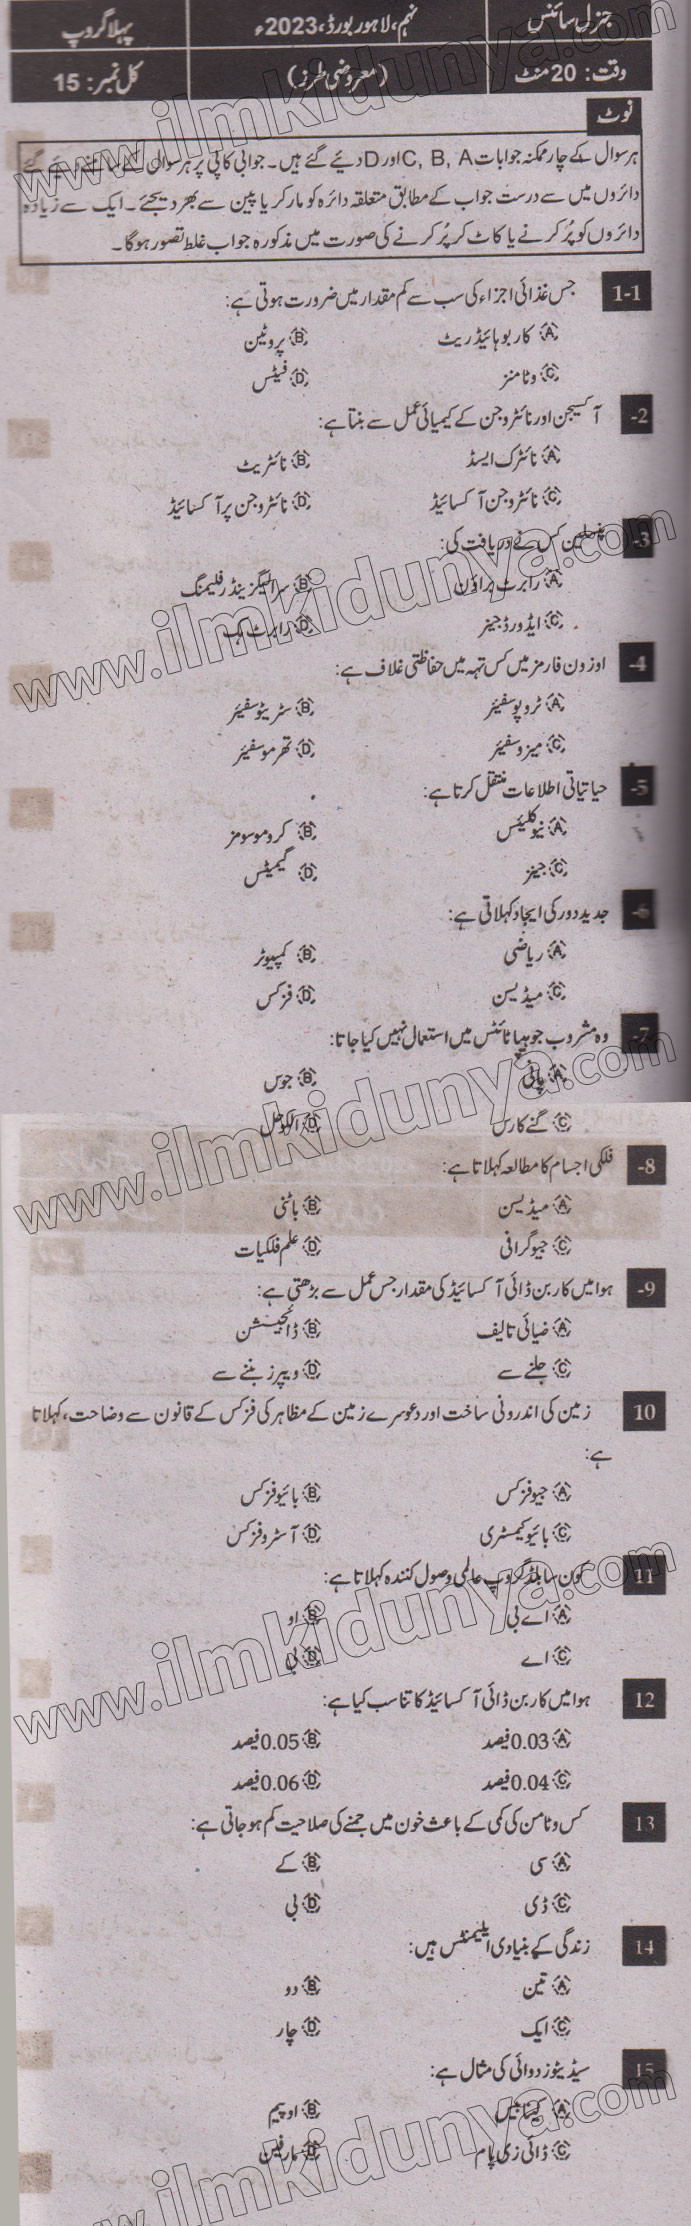 جنرل سائنس نہم، لاہور بورڈ، 2023ء پہلا گروپ
وقت: 20 منٹ (معروضی طرز) کل نمبر: 15
نوٹ
ہر سوال کے چار ممکنہ جوابات C, B, A اور D دیئے گئے ہیں۔ جوابی کاپی پر ہر سوال کے سامنے دیئے گئے
دائروں میں سے درست جواب کے مطابق متعلقہ دائرہ کو مارکر یا پین سے بھر دیجئے۔ ایک سے زیادہ
دائروں کو پُر کرنے یا کاٹ کر پُر کرنے کی صورت میں مذکورہ جواب غلط تصور ہوگا۔
1-1 جس غذائی اجزاء کی سب سے کم مقدار میں ضرورت ہوتی ہے:
(A) کاربوہائیڈریٹ (B) پروٹین
(C) وٹامنز (D) فیٹس
-2 آکسیجن اور نائٹروجن کے کیمیائی عمل سے بنتا ہے:
(A) نائٹرک ایسڈ (B) نائٹریٹ
(C) نائٹروجن آکسائیڈ (D) نائٹروجن پر آکسائیڈ
-3 پنسلین کس نے دریافت کی:
(A) رابرٹ براؤن (B) سر الیگزینڈر فلیمنگ
(C) ایڈورڈ جینر (D) رابرٹ ہک
-4 اوزون فارمز میں کس تہہ میں حفاظتی غلاف ہے:
(A) ٹروپوسفیئر (B) سٹریٹوسفیئر
(C) میزوسفیئر (D) تھرموسفیئر
-5 حیاتیاتی اطلاعات منتقل کرتا ہے:
(A) نیوکلیئس (B) کروموسومز
(C) جینز (D) گیمیٹس
-6 جدید دور کی ایجاد کہلاتی ہے:
(A) ریاضی (B) کمپیوٹر
(C) میڈیسن (D) فزکس
-7 وہ مشروب جو ہیپاٹائٹس میں استعمال نہیں کیا جاتا:
(A) پانی (B) جوس
(C) گنے کا رس (D) الکوحل
-8 فلکی اجسام کا مطالعہ کہلاتا ہے:
(A) میڈیسن (B) باٹنی
(C) جیوگرافی (D) علم فلکیات
-9 ہوا میں کاربن ڈائی آکسائیڈ کی مقدار جس عمل سے بڑھتی ہے:
(A) ضیائی تالیف (B) ڈائجیسشن
(C) جلنے سے (D) ویپرز بننے سے
10 زمین کی اندرونی ساخت اور دوسرے زمین کے مظاہر کی فزکس کے قانون سے وضاحت، کہلاتا
ہے:
(A) جیوفزکس (B) بائیوفزکس
(C) بائیوکیمسٹری (D) آسٹروفزکس
11 کون سا بلڈ گروپ عالمی وصول کنندہ کہلاتا ہے:
(A) اے بی (B) او
(C) اے (D) بی
12 ہوا میں کاربن ڈائی آکسائیڈ کا تناسب کیا ہے:
(A) 0.03 فیصد (B) 0.05 فیصد
(C) 0.04 فیصد (D) 0.06 فیصد
13 کس وٹامن کی کمی کے باعث خون میں جمنے کی صلاحیت کم ہو جاتی ہے:
(A) سی (B) کے
(C) ڈی (D) بی
14 زندگی کے بنیادی ایلیمنٹس ہیں:
(A) تین (B) دو
(C) ایک (D) چار
15 سیڈیٹوز دوائی کی مثال ہے:
(A) کینابیس (B) اوپیم
(C) ڈائی زی پام (D) مارفین
www.ilmkidunya.com
www.ilmkidunya.com
www.ilmkidunya.com
www.ilmkidunya.com
www.ilmkidunya.com